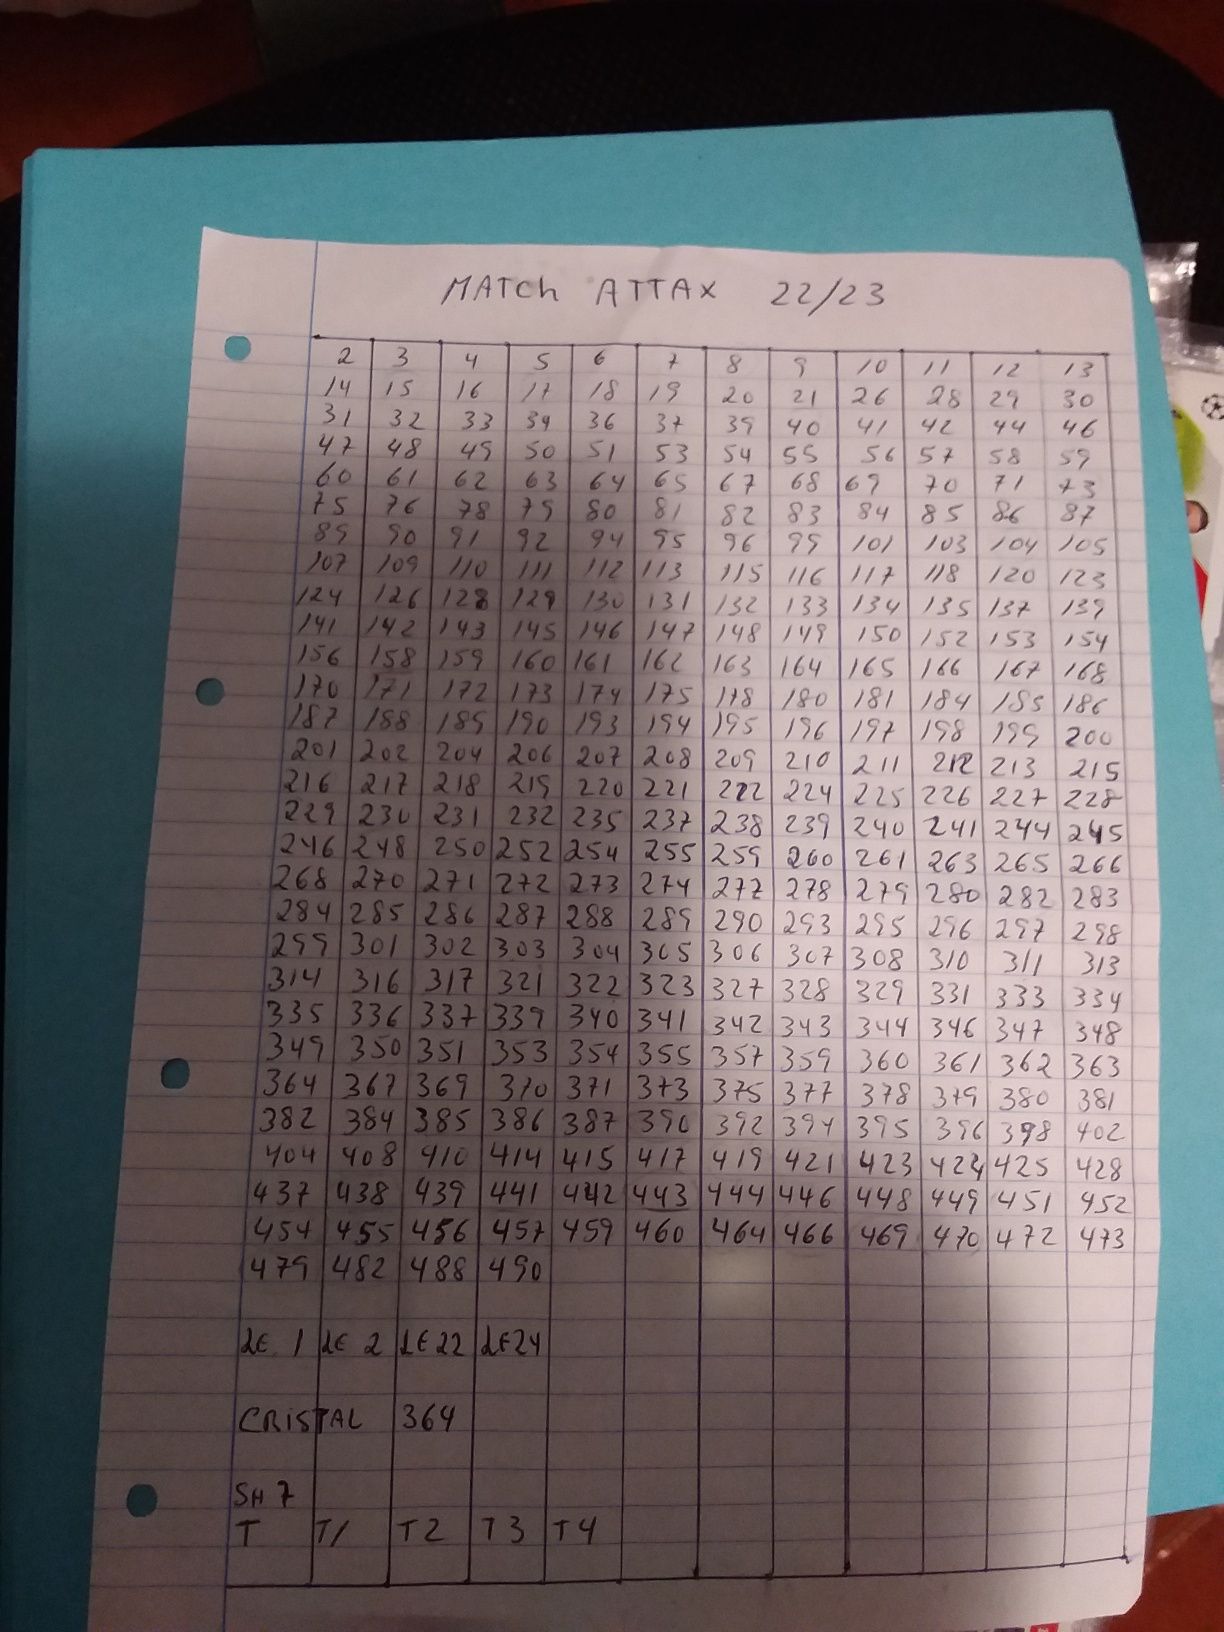 MATCh ATTAX 22/23
2 3 4 5 6 7 8 9 10 11 12 13
14 15 16 17 18 19 20 21 26 28 29 30
31 32 33 34 36 37 39 40 41 42 44 46
47 48 49 50 51 53 54 55 56 57 58 59
60 61 62 63 64 65 67 68 69 70 71 73
75 76 78 79 80 81 82 83 84 85 86 87
89 90 91 92 94 95 96 99 101 103 104 105
107 109 110 111 112 113 115 116 117 118 120 123
124 126 128 129 130 131 132 133 134 135 137 139
141 142 143 145 146 147 148 149 150 152 153 154
156 158 159 160 161 162 163 164 165 166 167 168
170 171 172 173 174 175 178 180 181 184 185 186
187 188 189 190 193 194 195 196 197 198 199 200
201 202 204 206 207 208 209 210 211 212 213 215
216 217 218 219 220 221 222 224 225 226 227 228
229 230 231 232 235 237 238 239 240 241 244 245
246 248 250 252 254 255 259 260 261 263 265 266
268 270 271 272 273 274 277 278 279 280 282 283
284 285 286 287 288 289 290 293 295 296 297 298
299 301 302 303 304 305 306 307 308 310 311 313
314 316 317 321 322 323 327 328 329 331 333 334
335 336 337 339 340 341 342 343 344 346 347 348
349 350 351 353 354 355 357 359 360 361 362 363
364 367 369 370 371 373 375 377 378 379 380 381
382 384 385 386 387 390 392 394 395 396 398 402
404 408 410 414 415 417 419 421 423 424 425 428
437 438 439 441 442 443 444 446 448 449 451 452
454 455 456 457 459 460 464 466 469 470 472 473
479 482 488 490
LE 1 LE 2 LE22 LE24
CRISTAL 364
SH 7
T T1 T2 T3 T4